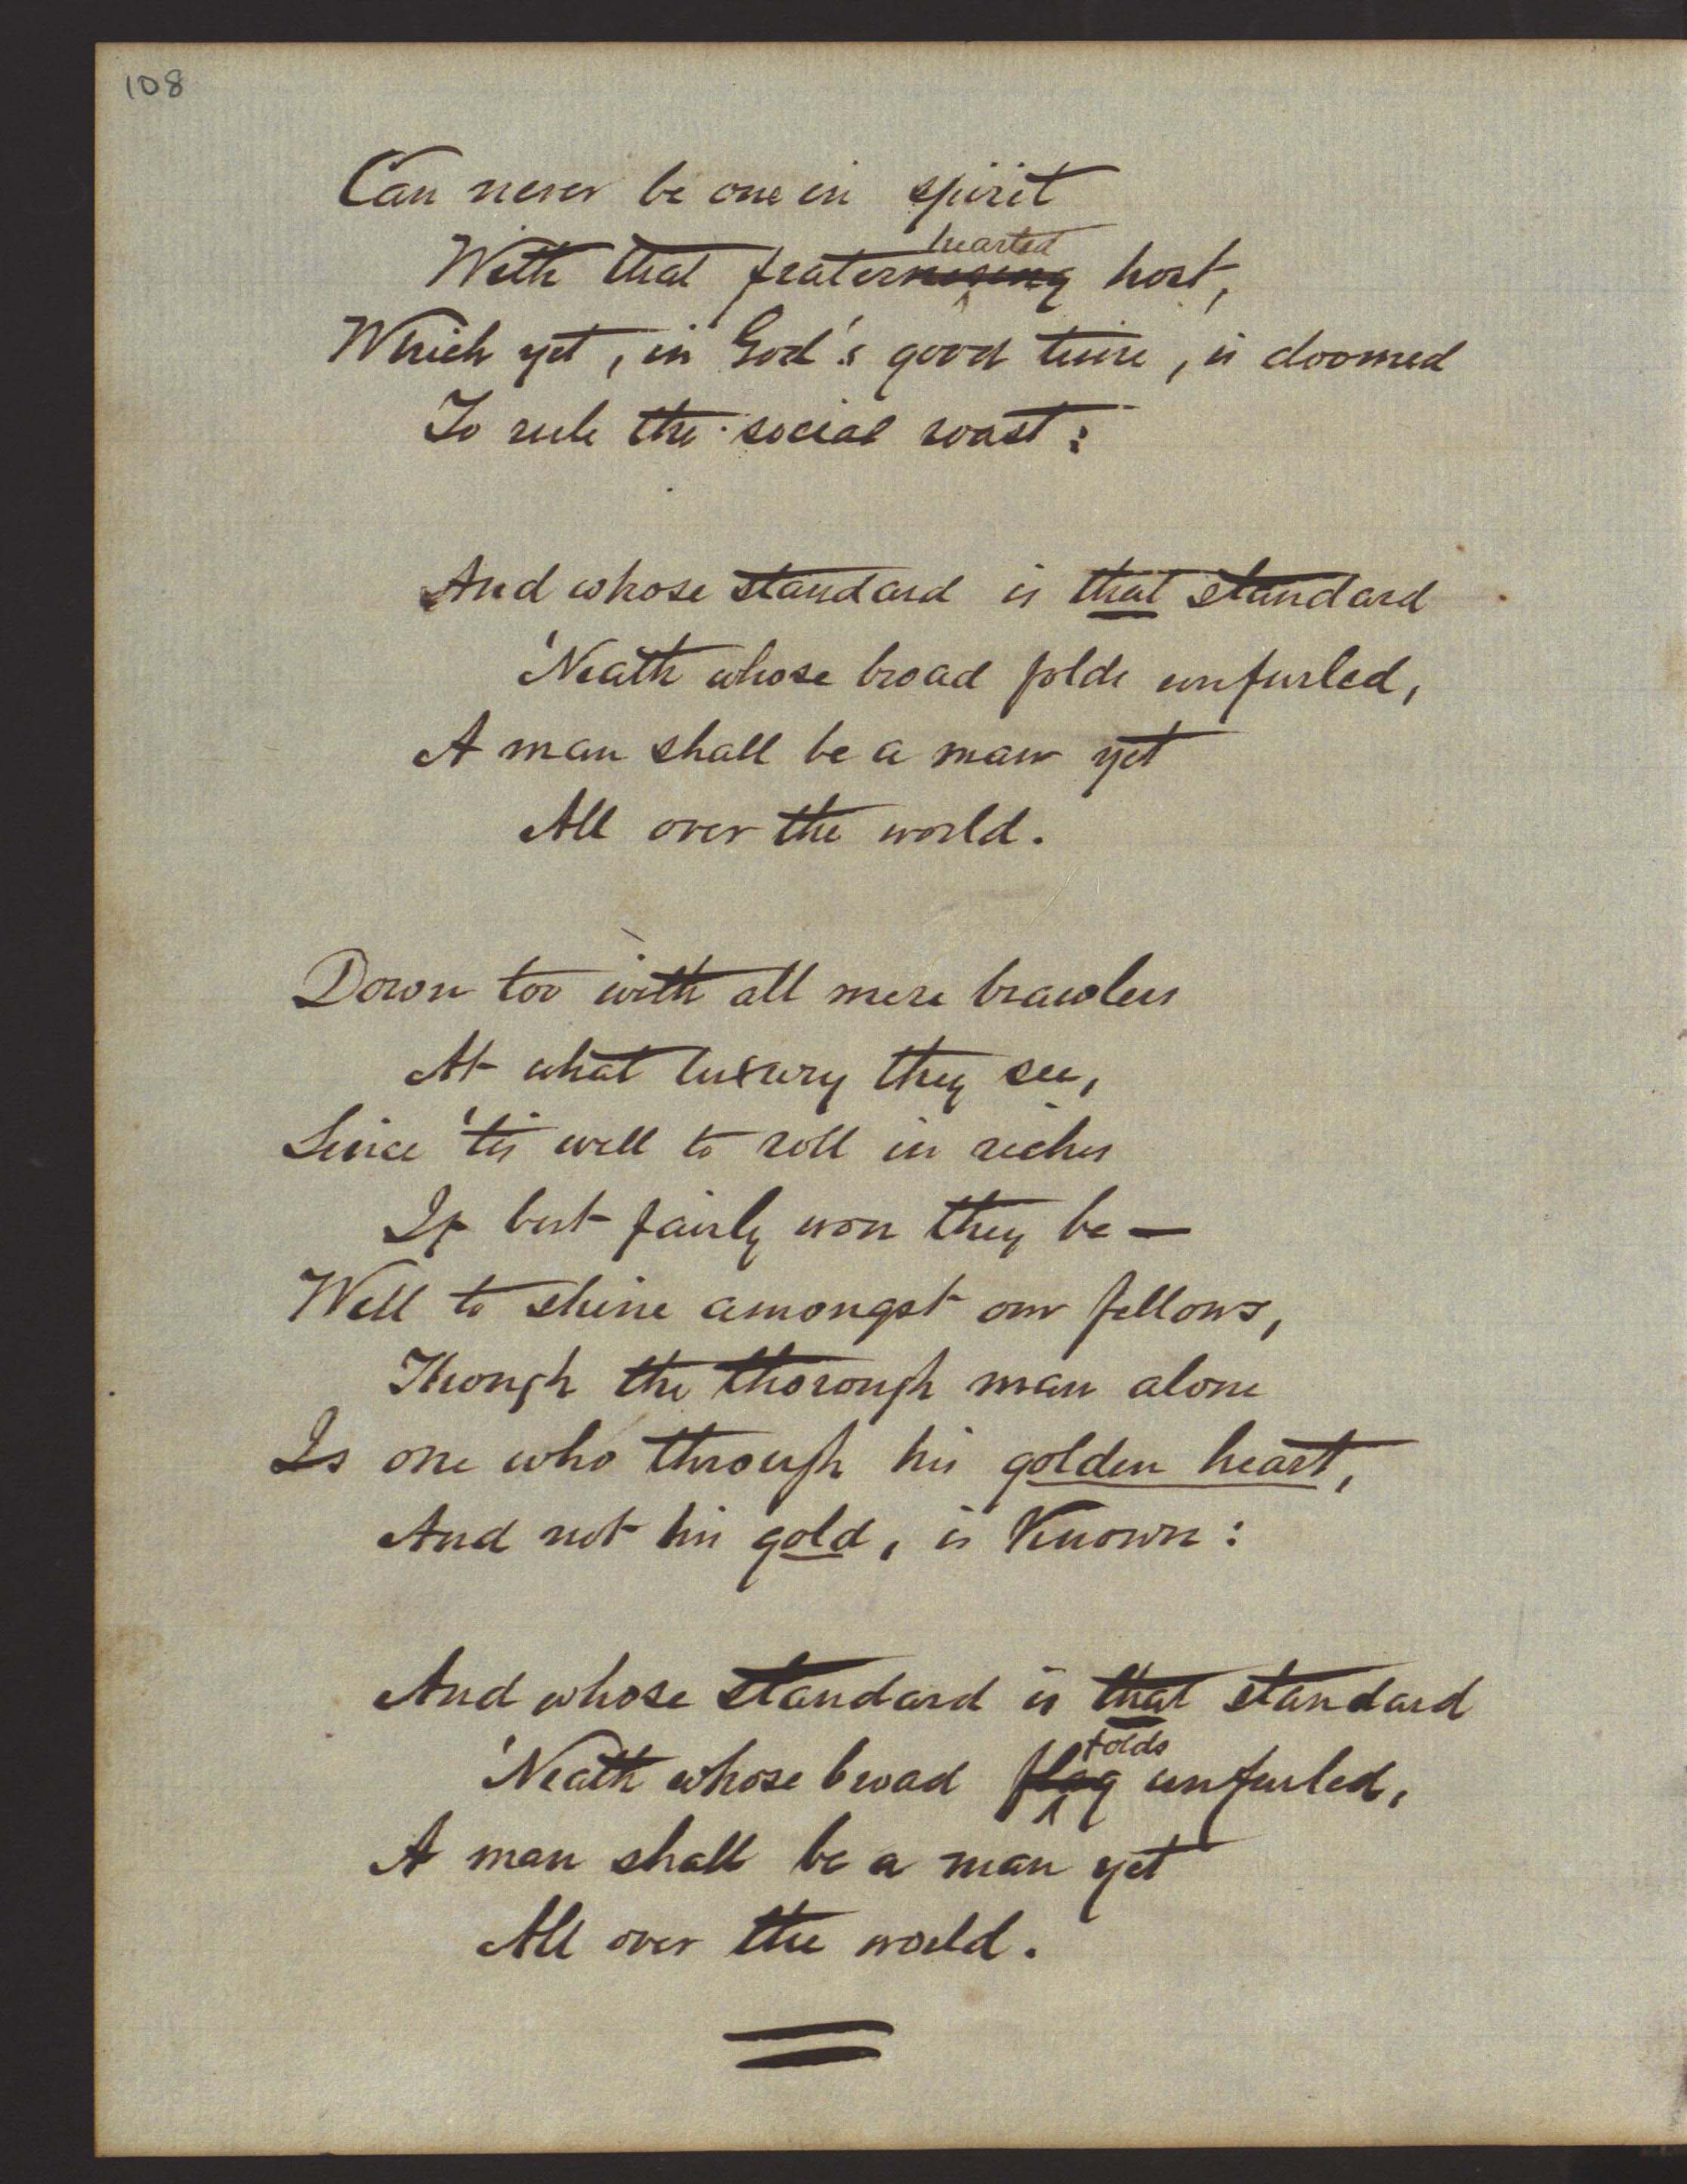 108
Can never be one in spirit
hearted
With that fraternising host,
Which yet, in God's good time, is doomed
To rule the social roast:
And whose standard is that standard
'Neath whose broad folds unfurled,
A man shall be a man yet
All over the world.
Down too with all mere brawlers
At what luxury they see,
Since 'tis well to roll in riches
If but fairly won they be —
Well to shine amongst our fellows,
Though the thorough man alone
Is one who through his golden heart,
And not his gold, is Known:
And whose standard is that standard
folds
'Neath whose broad flag unfurled,
A man shall be a man yet
All over the world.